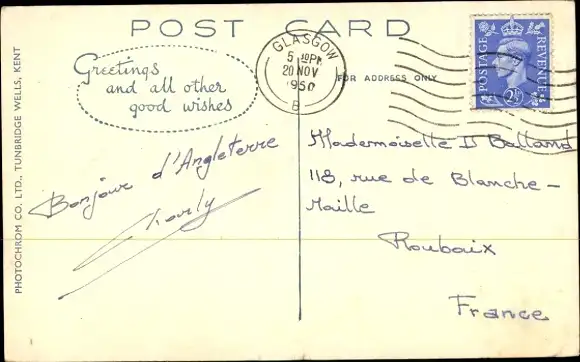 POST CARD
Greetings
and all other
good wishes
GLASGOW
5 30PM
20 NOV
1950
B
FOR ADDRESS ONLY
POSTAGE
REVENUE
2½D
PHOTOCHROM CO. LTD., TUNBRIDGE WELLS, KENT
Bonjour d'Angleterre
Mademoiselle Balland
118, rue de Blanche-
Maille
Roubaix
France